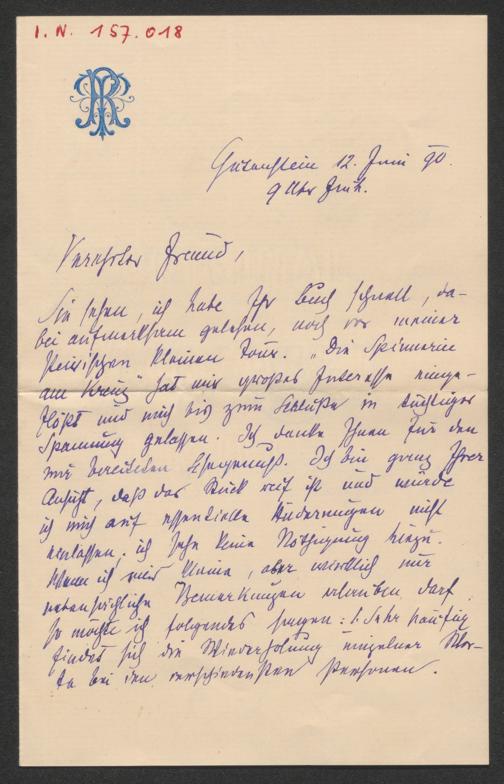 I. N. 157.018
R
Gutenstein 12. Juni 90.
9 Uhr Früh.
Verehrter Freund,
Sie sehen, ich habe Ihr Buch schnell, da-
bei aufmerksam gelesen, noch vor meiner
steirischen kleinen Tour. „Die Spinnerin
am Kreuz" hat mir großes Interesse einge-
flößt und mich bis zum Schluße in tüchtiger
Spannung gelassen. Ich danke Ihnen für den
mir bereiteten Lesegenuß. Ich bin ganz Ihrer
Ansicht, daß das Stück reif ist und würde
ich mich auf essentielle Änderungen nicht
einlassen; ich sehe keine Nöthigung hiezu.
Wenn ich mir kleine, aber wirklich nur
nebensächliche Bemerkungen erlauben darf
so möchte ich folgendes sagen: 1. Sehr häufig
findet sich die Wiederholung einzelner Wor-
te bei den verschiedensten Personen.